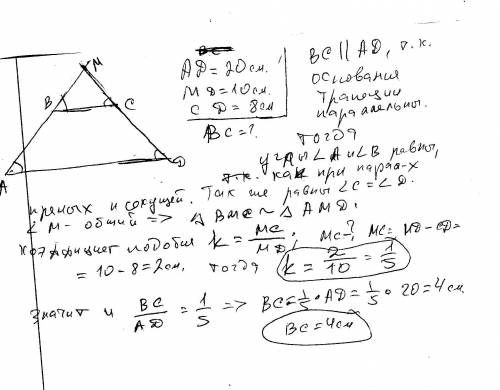 M
B
C
A
D
AD = 20 см.
MD = 10 см.
CD = 8 см
BC = ?
BC || AD, т.к.
основания
трапеции
параллельны.
тогда
углы ∠A и ∠B равны,
т.к. как при парал-х
прямых и секущей. Так же равны ∠C = ∠D.
∠M - общий => △ BMC ~ △ AMD.
коэффициент подобия k = MC/MD; MC - ? MC = MD - CD =
= 10 - 8 = 2 см, тогда k = 2/10 = 1/5
Значит и BC/AD = 1/5 => BC = 1/5 • AD = 1/5 • 20 = 4 см.
BC = 4 см